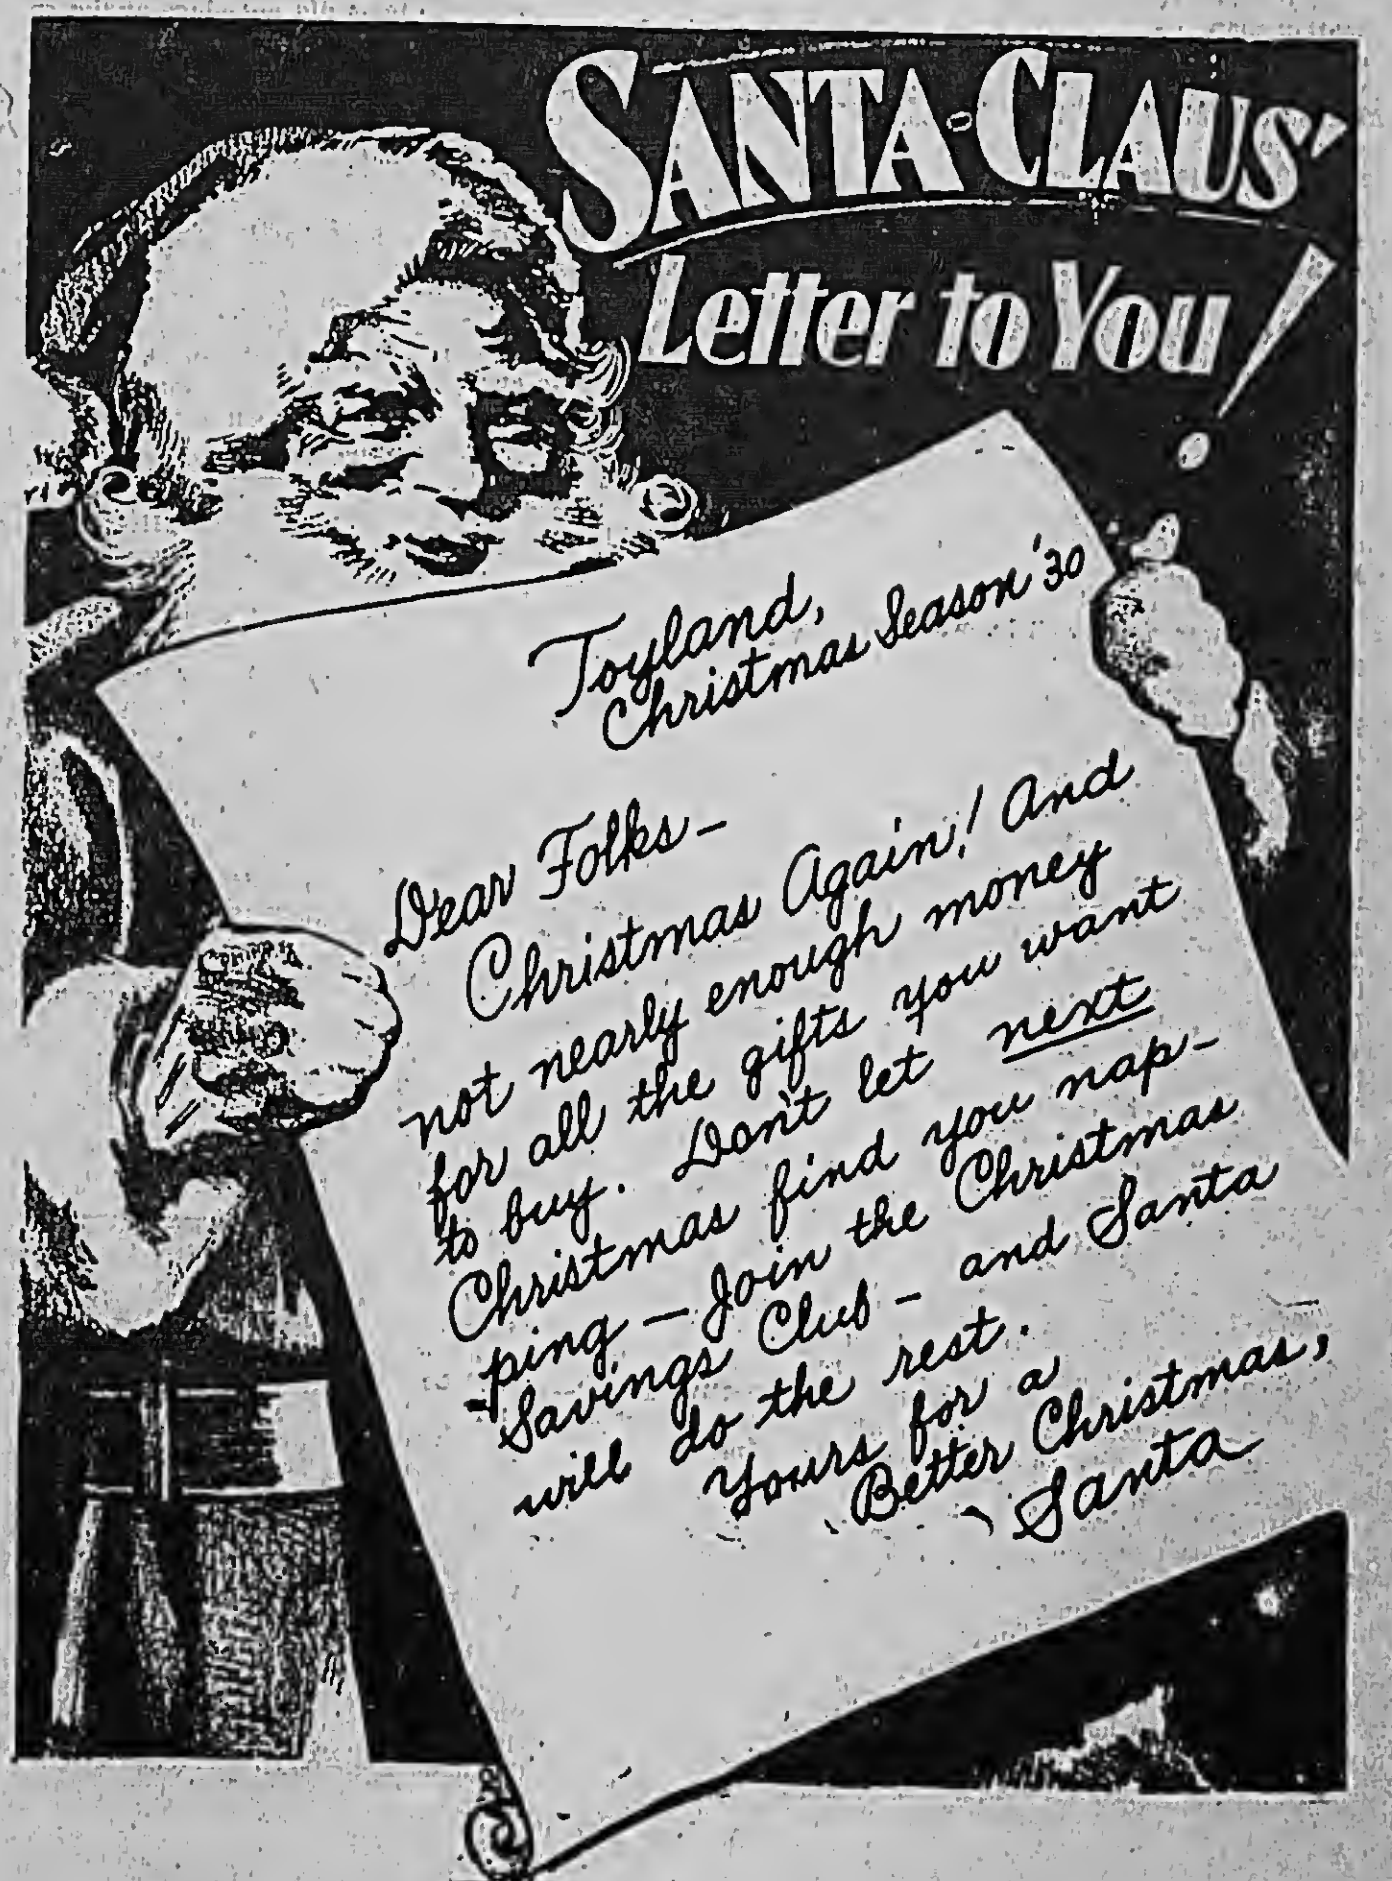 SANTA-CLAUS'
Letter to You!
Toyland,
Christmas Season '30
Dear Folks –
Christmas Again! And
not nearly enough money
for all the gifts you want
to buy. Don't let next
Christmas find you nap-
ping – Join the Christmas
Savings Club – and Santa
will do the rest.
Yours for a
Better Christmas,
Santa